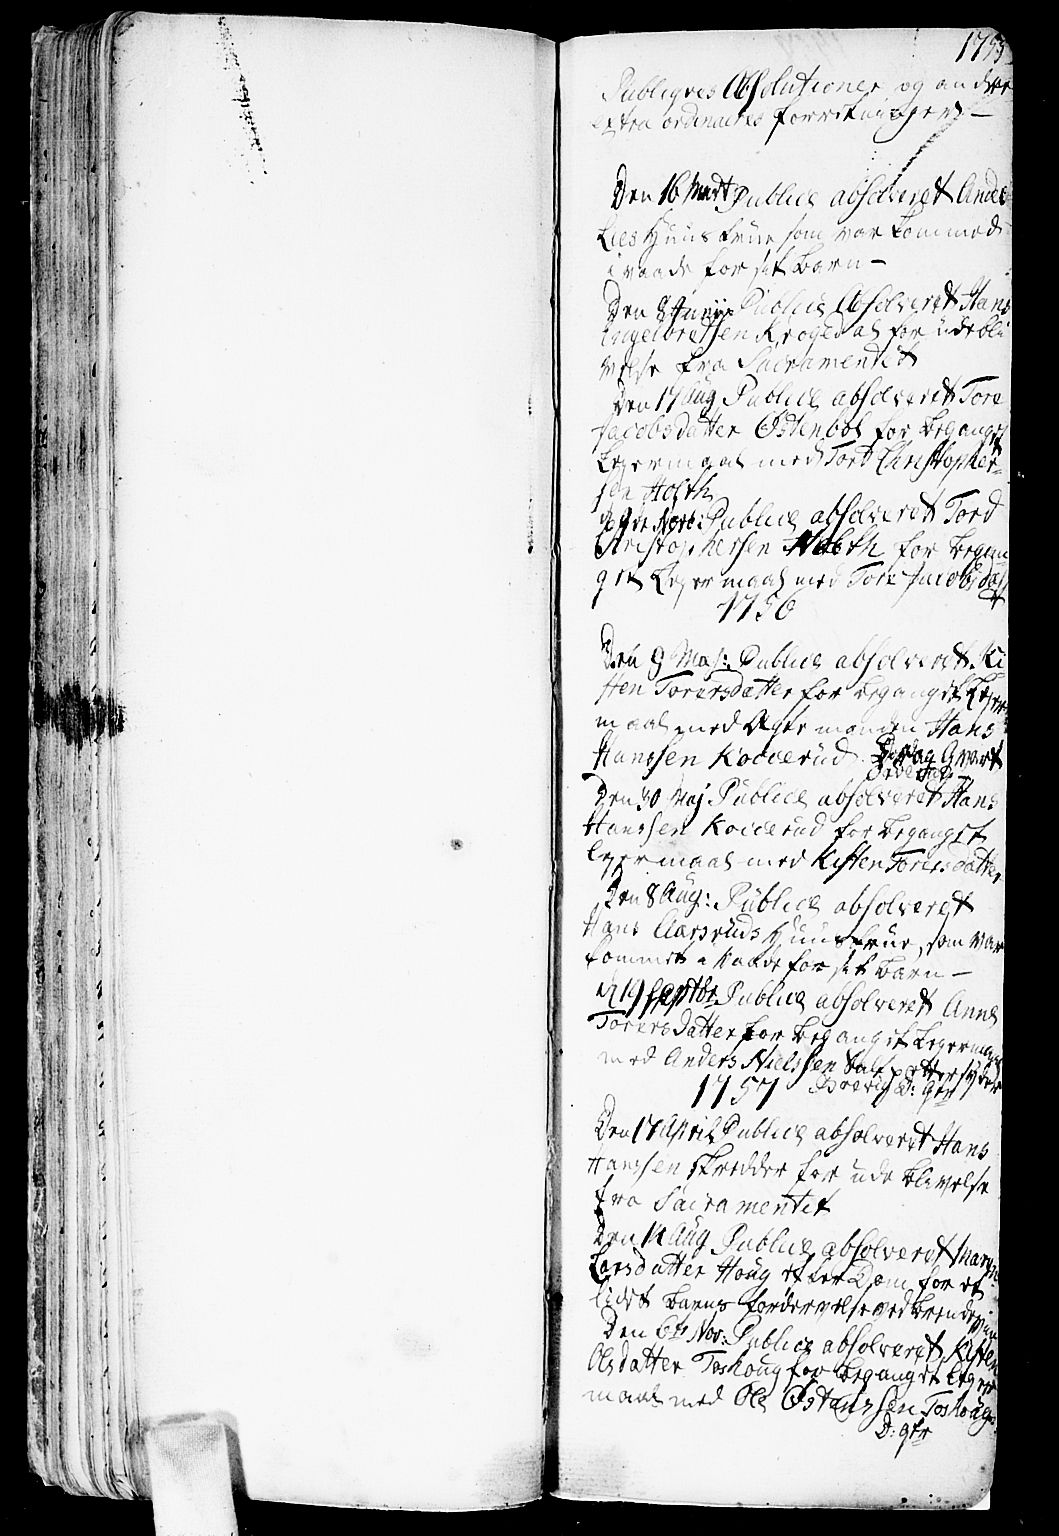 1755
Publiqves Absolutioner og andre
extra ordinaires forretninger
Den 16 Mart Publice absolveret Anders
Lies Huustrue som var kommed
i vaade for sit barn
Den 8 Junij Publice Absolveret Hans
Engelbretsen Krogedal for udebli
velse fra Sacramentet
Den 17 Aug Publice absolveret Tore
Jacobsdatter Østenbøl for beganget
Lejermaal med Tord Christopher
sen Holth
Nov: Publice absolveret Tord
Christophersen Holth for began
get Lejermaal med Tore Jacobsdatt
1756
Den 9 Maj: Publice absolveret Ki
sten Torersdatter for beganget Lejer
maal med Ægte manden Hans
Hanssen Kollerud
Den 30 Maj Publice absolveret Hans
Hanssen Kollerud for beganget
lejermaal med Kisten Torersdatter
Den 8 Aug: Publice absolveret
Hans Aarsruds Huustrue, som var
kommet i Vaade for sit barn
d 19 Septbr Publice absolveret Anne
Torersdatter for beganget Lejermaal
med Anders Nielssen Salpettersyder
1757
Den 17 April Publice absolveret Hans
Hanssen skredder for udeblivelse
fra Sacramentet
Den 14 Aug Publice absolveret Maren
Larsdatter Houg efter Dom for et
lidet barns fordervelse ved
Den 6te Nov: Publice absolveret Kisten
Olsdatter Toshoug for beganget Lejer
maal med Ole Østenssen Toshoug
D: gtr